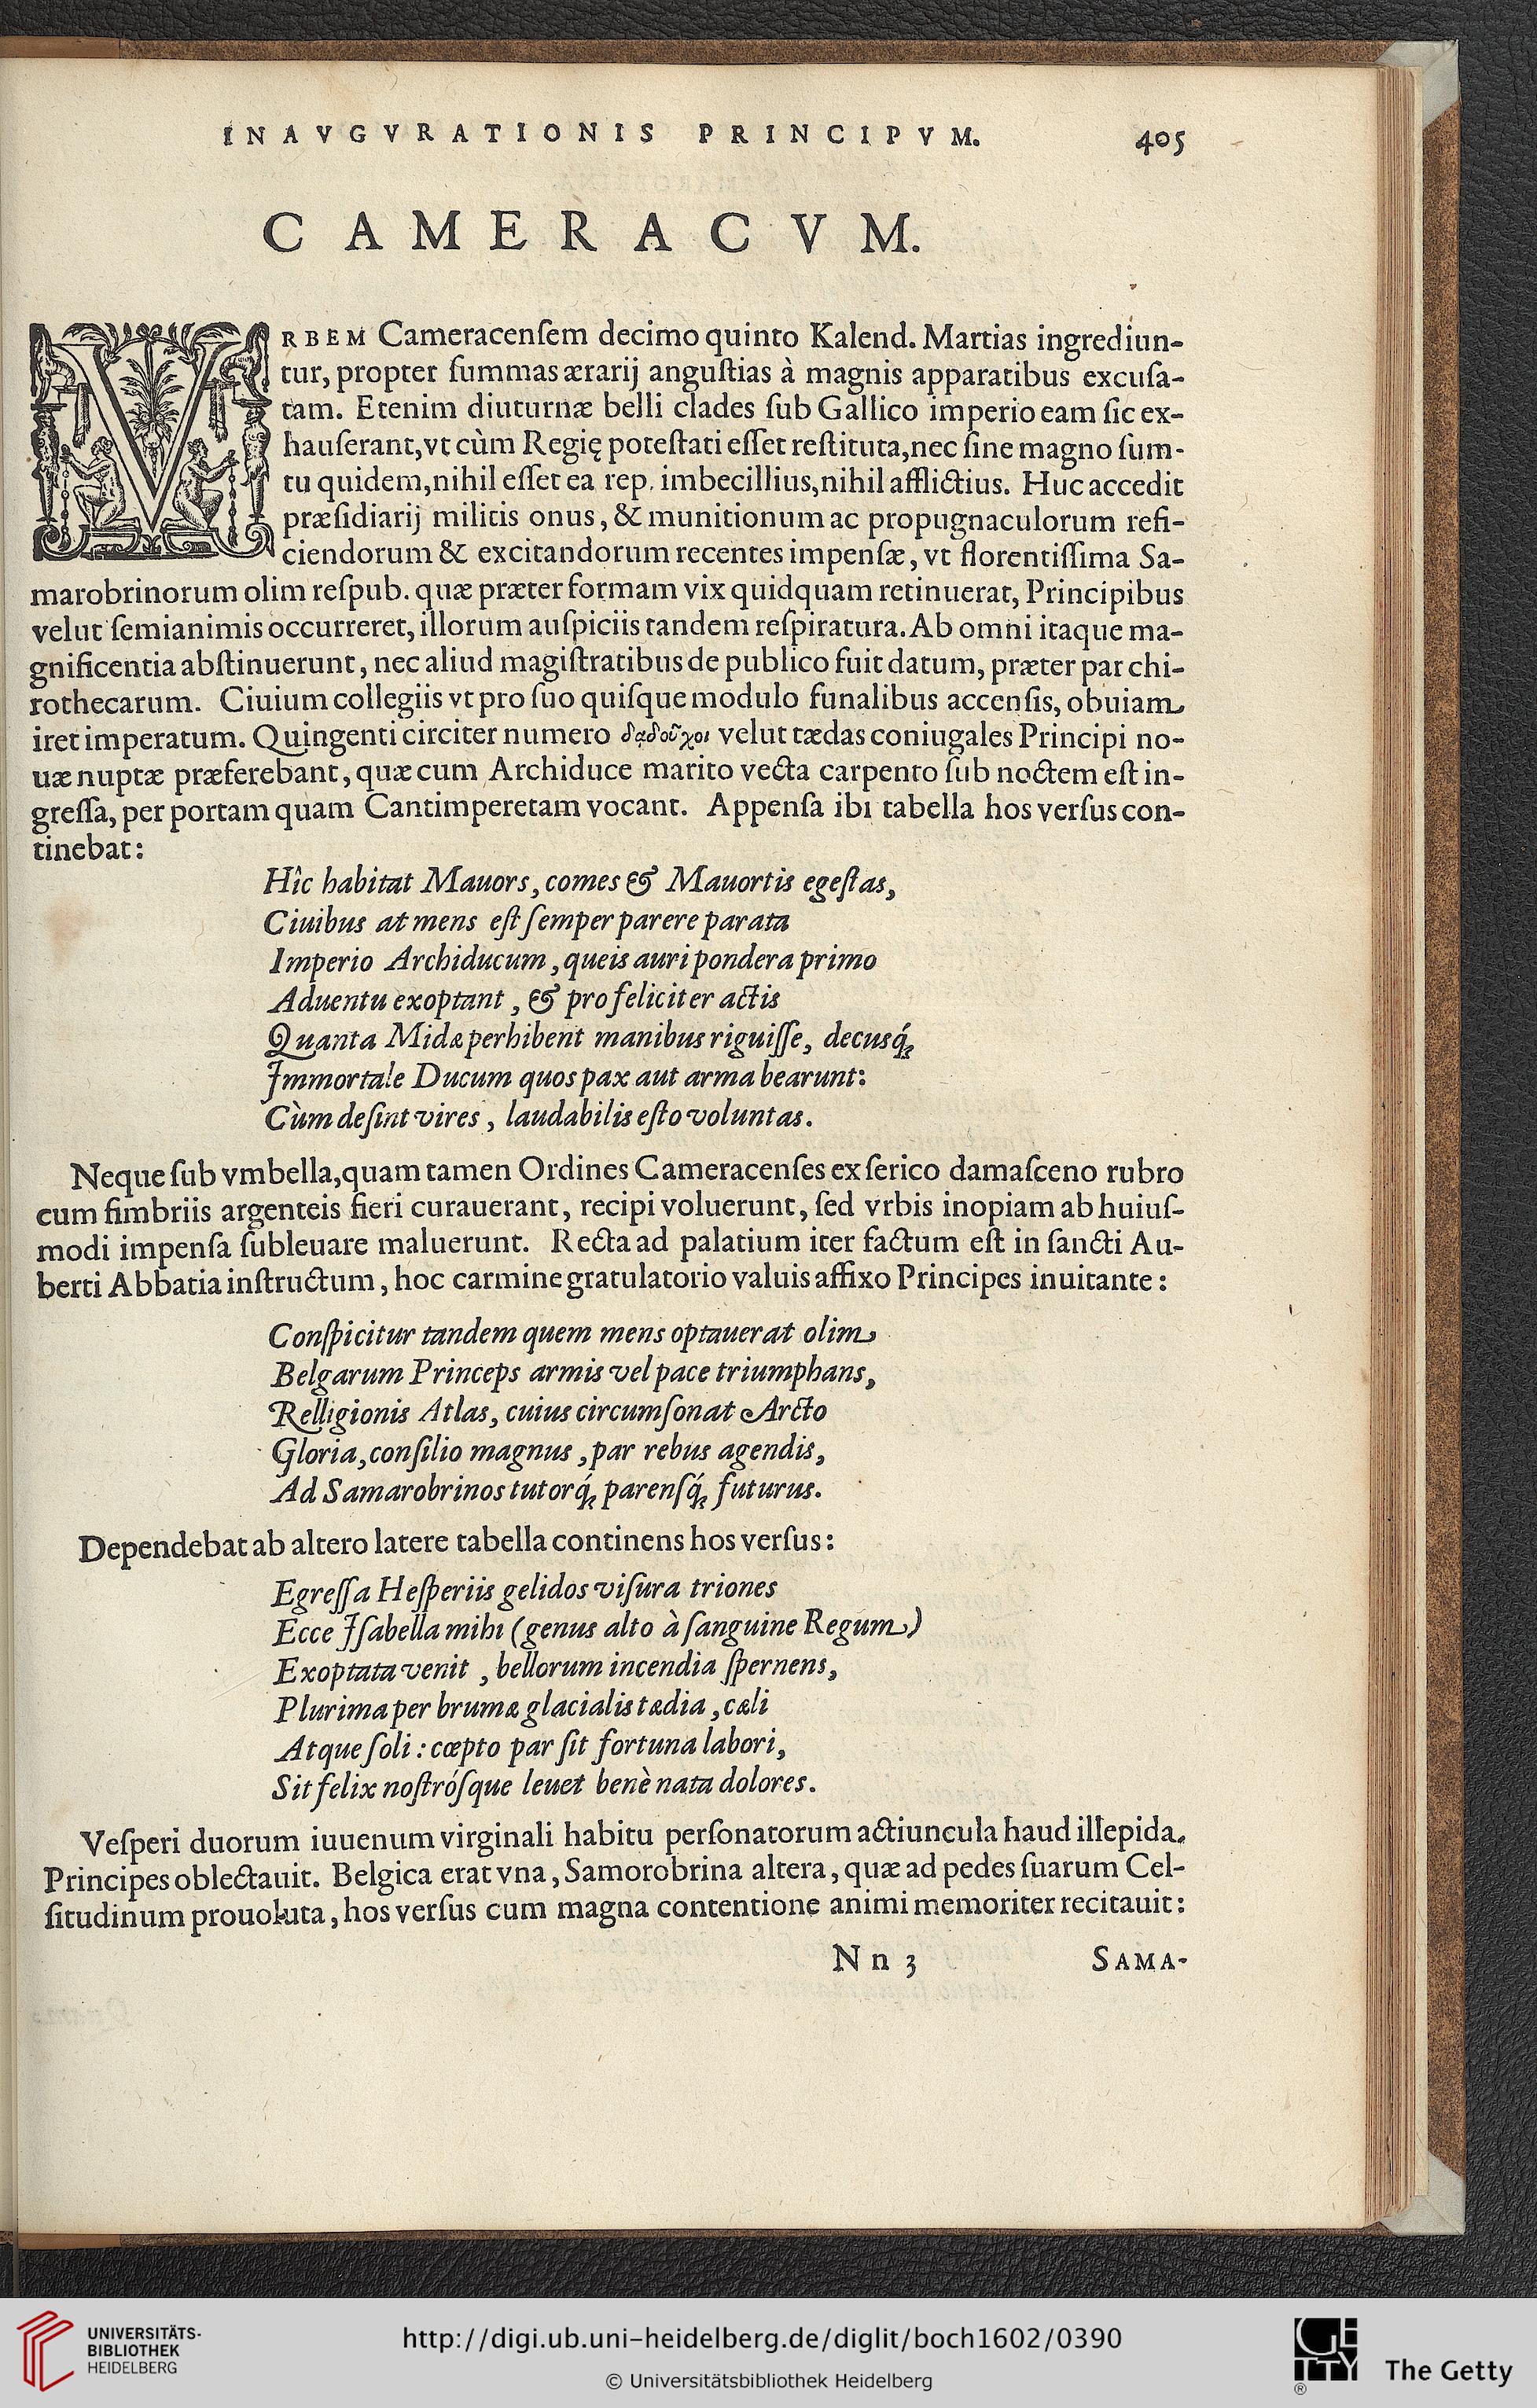 INAVGVRATIONIS PRINCIPVM. 405
CAMERACVM.
VRBEM Cameracenſem decimo quinto Kalend. Martias ingrediun-
tur, propter ſummas ærarij anguſtias à magnis apparatibus excuſa-
tam. Etenim diuturnæ belli clades ſub Gallico imperio eam ſic ex-
hauſerant, vt cùm Regię poteſtati eſſet reſtituta, nec ſine magno ſum-
tu quidem, nihil eſſet ea rep. imbecillius, nihil afflictius. Huc accedit
præſidiarij militis onus, & munitionum ac propugnaculorum refi-
ciendorum & excitandorum recentes impenſæ, vt florentiſſima Sa-
marobrinorum olim reſpub. quæ præter formam vix quidquam retinuerat, Principibus
velut ſemianimis occurreret, illorum auſpiciis tandem reſpiratura. Ab omni itaque ma-
gnificentia abſtinuerunt, nec aliud magiſtratibus de publico fuit datum, præter par chi-
rothecarum. Ciuium collegiis vt pro ſuo quiſque modulo funalibus accenſis, obuiam
iret imperatum. Quingenti circiter numero δᾳδοῦχοι velut tædas coniugales Principi no-
uæ nuptæ præferebant, quæ cum Archiduce marito vecta carpento ſub noctem eſt in-
greſſa, per portam quam Cantimperetam vocant. Appenſa ibi tabella hos verſus con-
tinebat:
Hîc habitat Mauors, comes & Mauortis egeſtas,
Ciuibus at mens eſt ſemper parere parata
Imperio Archiducum, queis auri pondera primo
Aduentu exoptant, & pro feliciter actis
Quanta Midæ perhibent manibus riguiſſe, decusq́;
Immortale Ducum quos pax aut arma bearunt:
Cùm deſint vires, laudabilis eſto voluntas.
Neque ſub vmbella, quam tamen Ordines Cameracenſes ex ſerico damaſceno rubro
cum fimbriis argenteis fieri curauerant, recipi voluerunt, ſed vrbis inopiam ab huiuſ-
modi impenſa ſubleuare maluerunt. Recta ad palatium iter factum eſt in ſancti Au-
berti Abbatia inſtructum, hoc carmine gratulatorio valuis affixo Principes inuitante:
Conſpicitur tandem quem mens optauerat olim
Belgarum Princeps armis vel pace triumphans,
Relligionis Atlas, cuius circumſonat Arcto
Gloria, conſilio magnus, par rebus agendis,
Ad Samarobrinos tutorq́; parenſq́; futurus.
Dependebat ab altero latere tabella continens hos verſus:
Egreſſa Heſperiis gelidos viſura triones
Ecce Iſabella mihi (genus alto à ſanguine Regum)
Exoptata venit, bellorum incendia ſpernens,
Plurima per brumæ glacialis tædia, cæli
Atque ſoli: cœpto par ſit fortuna labori,
Sit felix noſtróſque leuet benè nata dolores.
Veſperi duorum iuuenum virginali habitu perſonatorum actiuncula haud illepida
Principes oblectauit. Belgica erat vna, Samorobrina altera, quæ ad pedes ſuarum Cel-
ſitudinum prouoluta, hos verſus cum magna contentione animi memoriter recitauit:
Nn 3 SAMA-
UNIVERSITÄTS-
BIBLIOTHEK
HEIDELBERG
http://digi.ub.uni-heidelberg.de/diglit/boch1602/0390
© Universitätsbibliothek Heidelberg
GETTY
®
The Getty